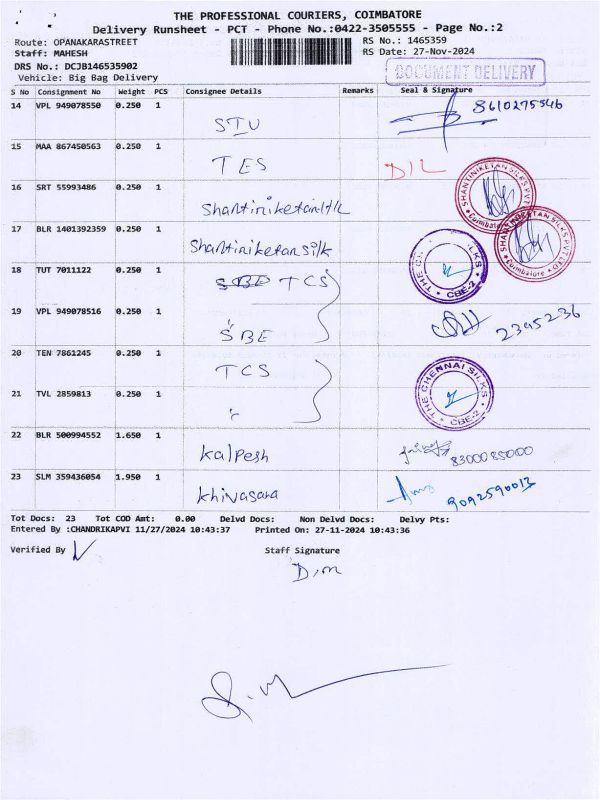 THE PROFESSIONAL COURIERS, COIMBATORE
Delivery Runsheet - PCT - Phone No.:0422-3505555 - Page No.:2
Route: OPANAKARASTREET RS No.: 1465359
Staff: MAHESH RS Date: 27-Nov-2024
DRS No.: DCJB146535902
Vehicle: Big Bag Delivery
DOCUMENT DELIVERY
S No Consignment No Weight PCS Consignee Details Remarks Seal & Signature
14 VPL 949078550 0.250 1 STU 8610275546
15 MAA 867450563 0.250 1 TES D/L
16 SRT 55993486 0.250 1 Shantiniketan
SHANTINIKETAN SILKS PVT LTD Coimbatore
17 BLR 1401392359 0.250 1 Shantiniketan silk
SHANTINIKETAN SILKS PVT LTD Coimbatore
18 TUT 7011122 0.250 1 TCS
THE SILKS CBE-2
19 VPL 949078516 0.250 1 SBE 2395236
20 TEN 7861245 0.250 1 TCS
THE CHENNAI SILKS CBE-2
21 TVL 2859813 0.250 1 "
22 BLR 500994552 1.650 1 Kalpesh 8300085000
23 SLM 359436054 1.950 1 Khivasara 9092590013
Tot Docs: 23 Tot COD Amt: 0.00 Delvd Docs: Non Delvd Docs: Delvy Pts:
Entered By :CHANDRIKAPVI 11/27/2024 10:43:37 Printed On: 27-11-2024 10:43:36
Verified By Staff Signature